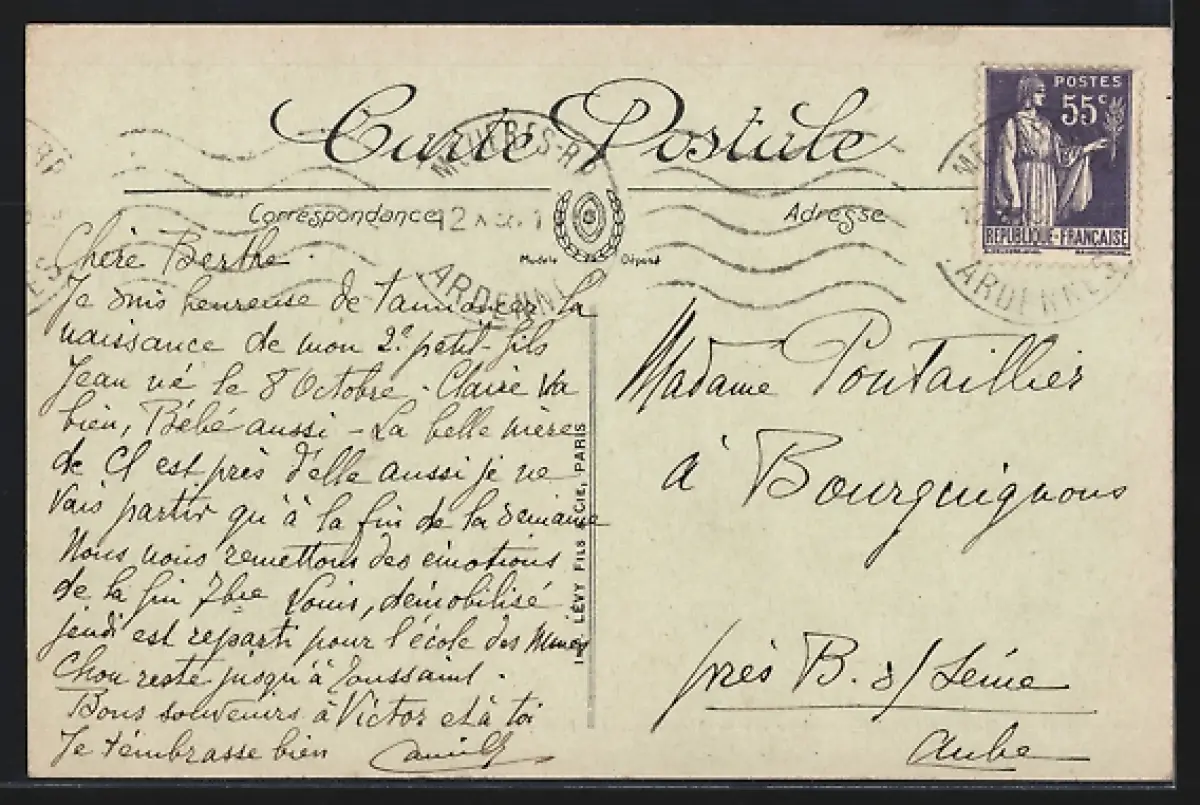 Carte Postale
POSTES
55c
REPUBLIQUE-FRANÇAISE
MEZIERES-A
12
ARDENNES
Correspondance
Adresse
Modèle Déposé
Chère Berthe.
Je suis heureuse de t'annoncer la
naissance de mon 2e petit-fils
Jean né le 8 Octobre - Claire va
bien, Bébé aussi - La belle mère
de Cl est près d'elle aussi je ne
vais partir qu'à la fin de la semaine
Nous nous remettons des émotions
de la fin 7bre Louis, démobilisé
jeudi est reparti pour l'école des Mines
Chou reste jusqu'à Toussaint.
Bons souvenirs à Victor et à toi
Je t'embrasse bien
Madame Pontaillier
à Bourguignons
près B. s/ Seine
Aube
LÉVY FILS & CIE, PARIS